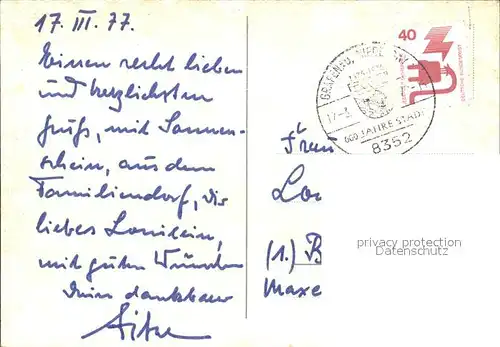 17. III. 77.
Einen recht lieben
und herzlichsten
Gruß, mit Sonnen-
schein, aus dem
Familiendorf, Dir
liebes Louislein,
mit guten Wünschen
Dein dankbarer
40
GRAFENAU,
17.-3.
600 JAHRE STADT
8352
Frau
Lou
(1.) B
Maxe
privacy protection
Datenschutz